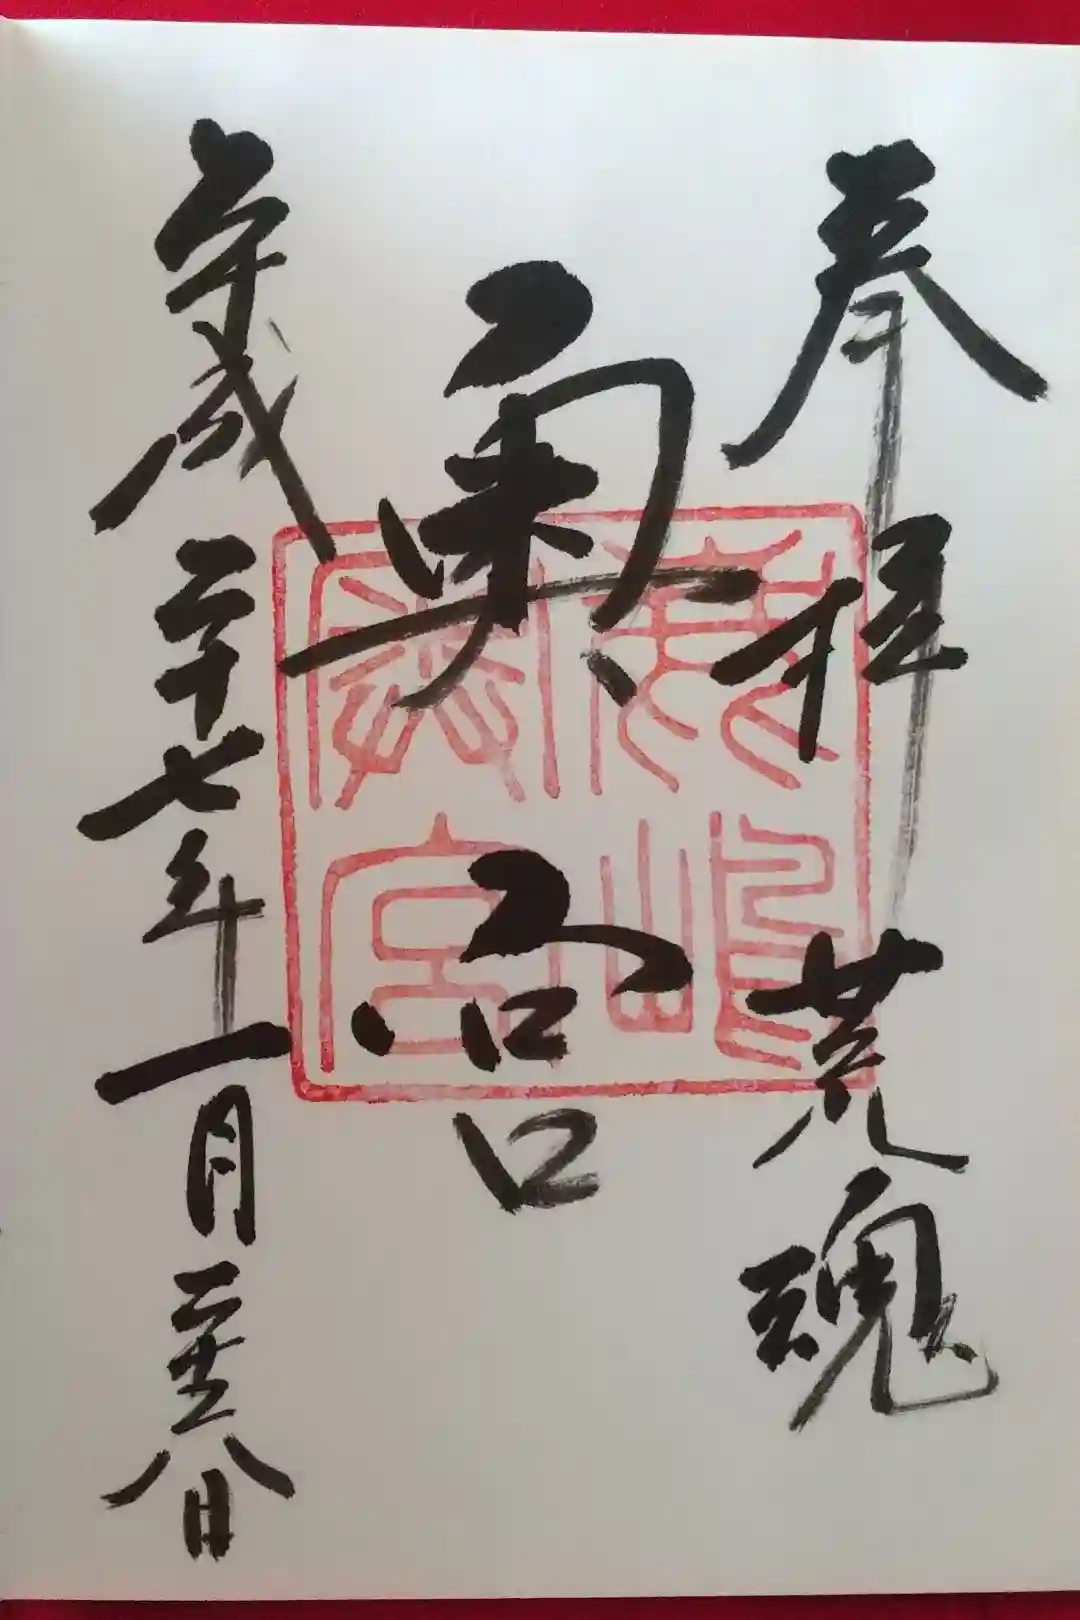 奉拝 荒魂
奥宮
鹿嶋
奥宮
平成二十七年一月二十八日